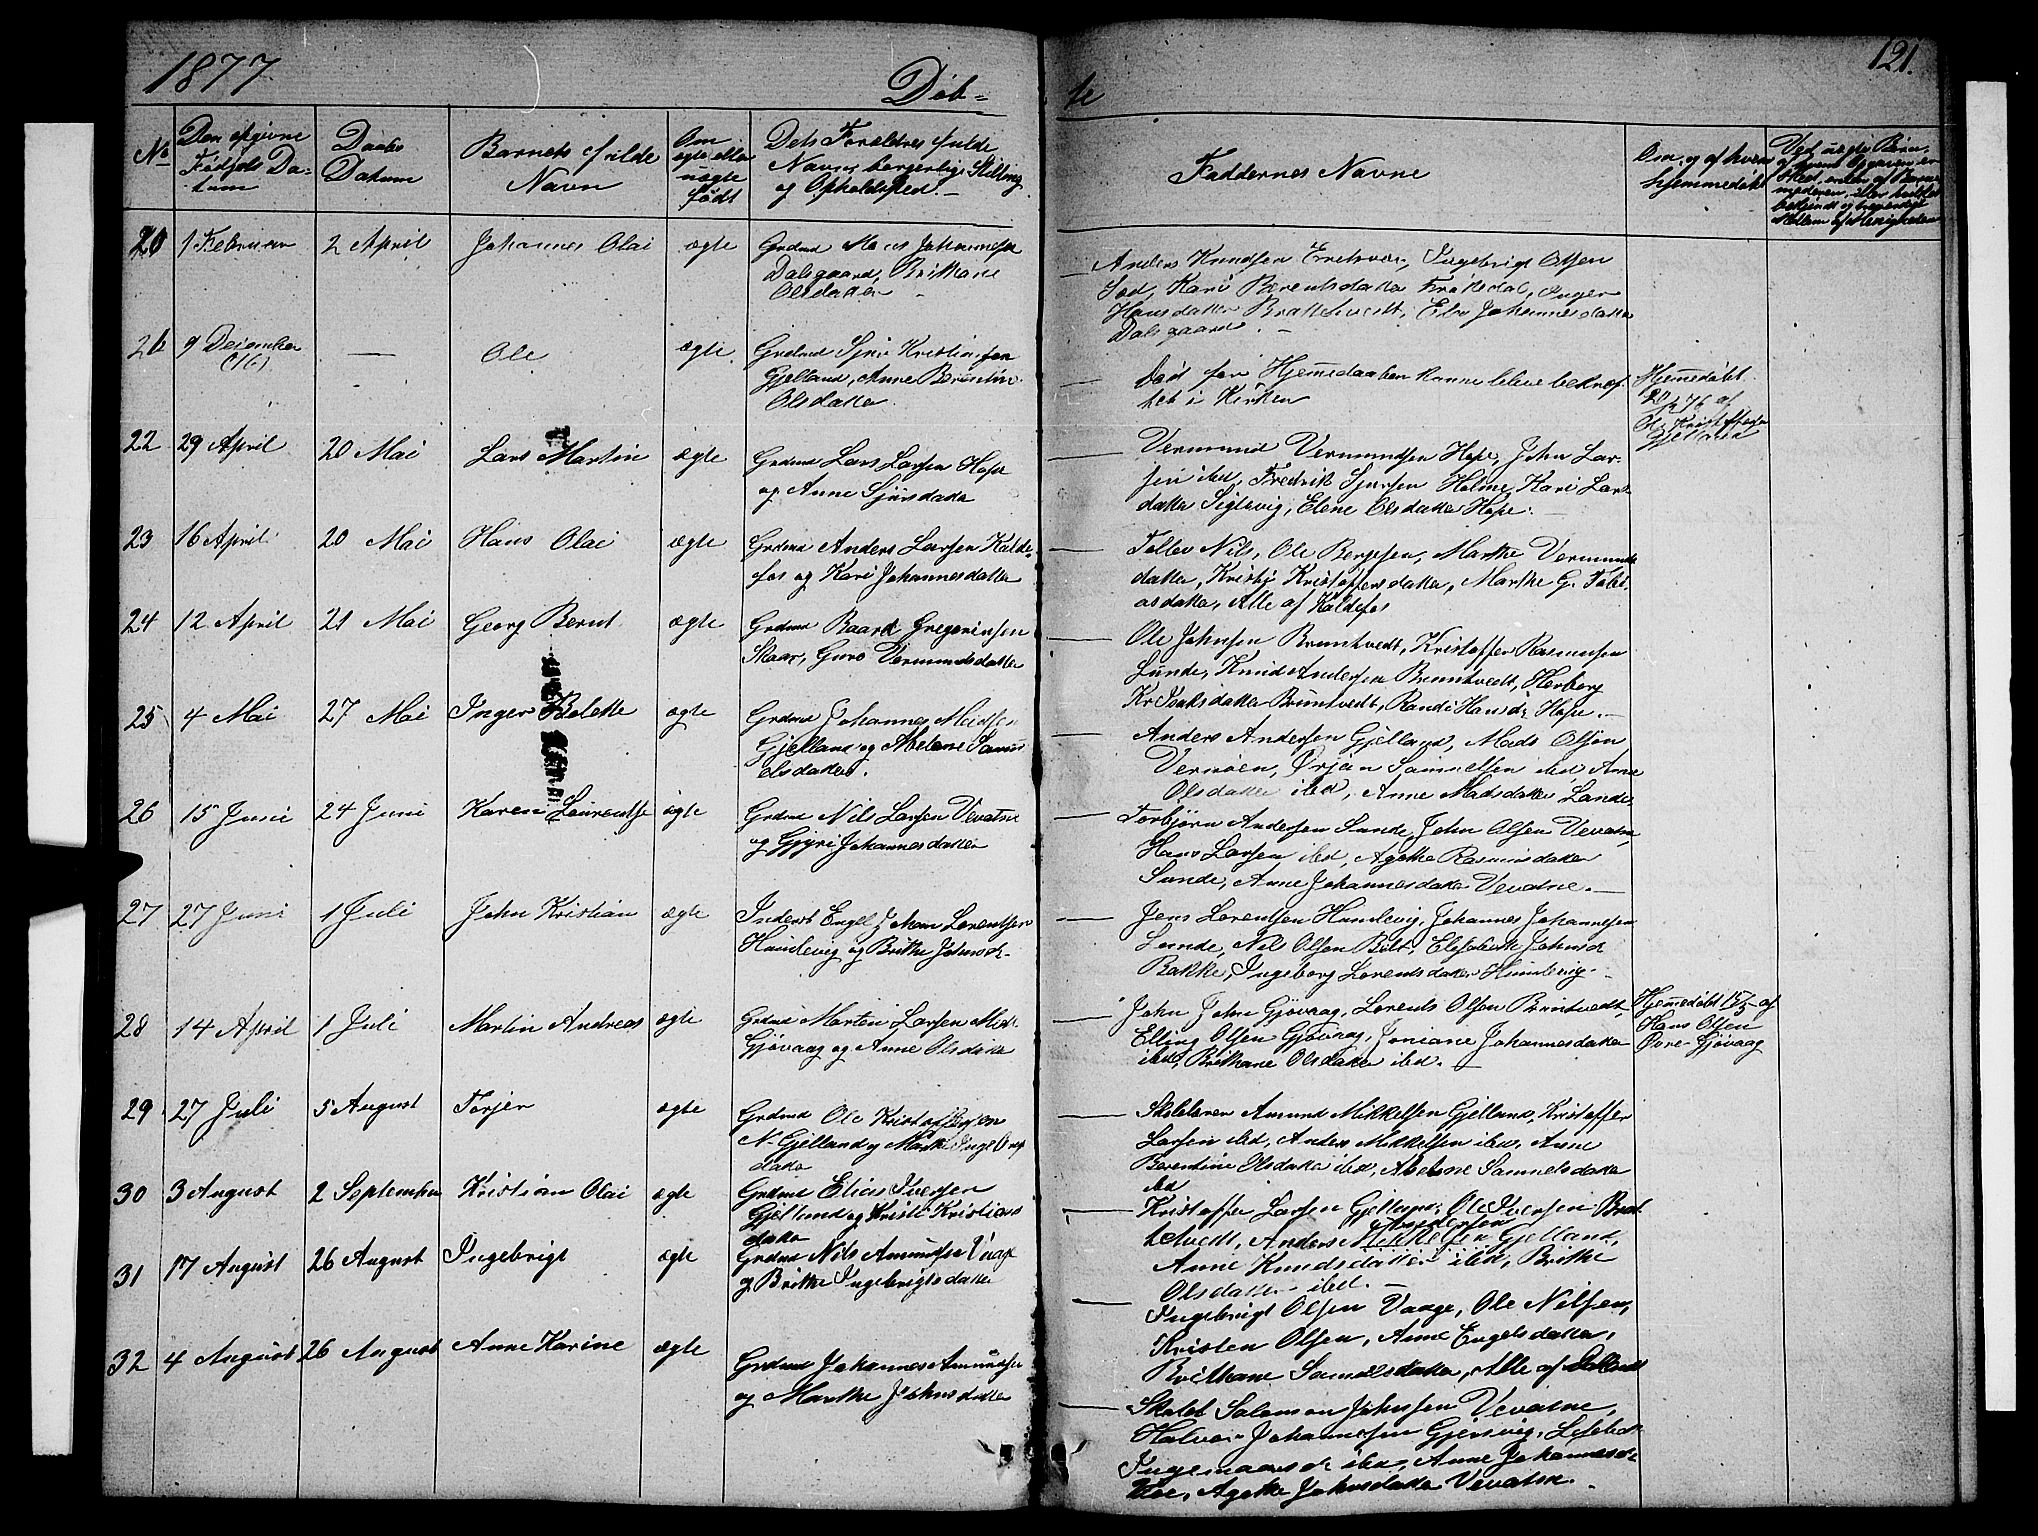 1877
Döb-
te
121.
No
Den opgivne
Fødsels Da-
tum
Daabs
Datum
Barnets fulde
Navn
Om
ægte eller
uægte
født
Dets Forældres fulde
Navne borgerlige Stilling
og Opholdssted.
Faddernes Navne
Om og af hvem
hjemmedøbt
20 1 Februar 2 April Johannes Olai ægte
Grdmd Johannesen
Dalsgaard, Brithane
Olsdatter
Anders Knudsen Ingebrigt Olsen
Kari Berentsdatter Frøkedal, Inger
Hansdatter
Johannesdatter
Dalsgaard.
9 December
(76)
— Ole ægte
Grdmd Kristiansen
Gjelland, Anne Berentine
Olsdatter.
Død før Hjemmedaaben kunne blive bekræf-
tet i Kirken
Hjemmedøbt
Gjelland
22 29 April 20 Mai Lars Martin ægte
Grdmd Lars Larsen Hope
og Anne Sjursdatter
Vermund Vermundsen Hope, John Lar-
sen ibd, Fredrik Sjursen Holme, Kari Lars
datter Siglevig, Elene Olsdatter Hope.
23 16 April 20 Mai Hans Olai ægte
Grdmd Anders Larsen Kalde-
fos og Kari Johannesdatter
Nils, Ole Bergesen, Marthe Vermunds
datter, Kristi Kristoffersdatter, Marthe G. Tobi-
asdatter, Alle af Kaldefos
24 12 April 21 Mai Georg Bernt ægte
Grdmd Baard Gregoriusen
Skaar, Guro Vermundsdatter
Ole Johnsen Bruntvedt, Kristoffer Rasmusen
Lunde, Knud Andersen Bruntvedt, Herborg
Kr. Isaksdatter Bruntvedt, Randi Hansd. Hope.
25 4 Mai 27 Mai Inger Belette ægte
Grdmd Johannes Madsen
Gjelland og Abelone Samu-
elsdatter.
Anders Andersen Gjelland, Mads Olsen
Vermøen, Ørjan Samuelsen ibd, Anne
Olsdatter ibd, Anne Madsdatter Lande
26 15 Juni 24 Juni Karen Laurentse ægte
Grdmd Nils Larsen Vevatne
og Gjyri Johannesdatter
Torbjørn Andersen Sunde, John Olsen Vevatne,
Hans Larsen ibd, Agathe Rasmusdatter
Sunde, Anne Johannesdatter Vevatne.
27 27 Juni 1 Juli John Kristian ægte
Inderst Engel Lorentsen
Humlevig og Brithe Johnsd.
Jens Lorentsen Humlevig, Johannes Johannesen
Lunde, Nils Olsen Elisabeth Johnsd.
Bakke, Ingeborg Lorentsdatter Humlevig.
28 14 April 1 Juli Martin Andreas ægte
Grdmd Marten Larsen
Gjøvaag og Anne Olsdatter
John John Gjøvaag, Lorents Olsen Bruntvedt,
Elling Olsen Gjøvaag, Joniane Johannesdatter
ibd, Brithane Olsdatter ibd.
Hjemmedøbt af
Hans Olsen
Øvre Gjøvaag
29 27 Juli 5 August Torjer ægte
Grdmd Ole Kristoffersen
N. Gjelland og Marthe Ingebrigts
datter
Skolelærer Amund Mikkelsen Gjelland, Kristoffer
Larsen ibd, Anders Mikkelsen ibd, Anne
Berentine Olsdatter ibd, Abelone Samuelsdatter
ibd
30 3 August 2 September Kristian Olai ægte
Grdmd Elias Iversen
Gjelland og Kristi Kristians
datter
Kristoffer Larsen Gjelland, Ole Iversen Brat-
tetvedt, Anders Mikkelsen Gjelland,
Andersen
Anne Knudsdatter ibd, Brithe
Olsdatter ibd.
31 17 August 26 August Ingebrigt ægte
Grdmd Nils Amundsen Vaage
og Brithe Ingebrigtsdatter
Ingebrigt Olsen Vaage, Ole Nilsen,
Kristen Olsen, Anne Engelsdatter,
Brithane Samuelsdatter, Alle af
32 4 August 26 August Anne Karine ægte
Grdmd Johannes Amundsen
og Marthe Johnsdatter
Skolel. Salomon Johnsen Vevatne,
Halvor Johannesen Gjersvig, Lisebeth
Ingemaarsd. ibd, Anne Johannesd.
Agathe Johnsdatter Vevatne.